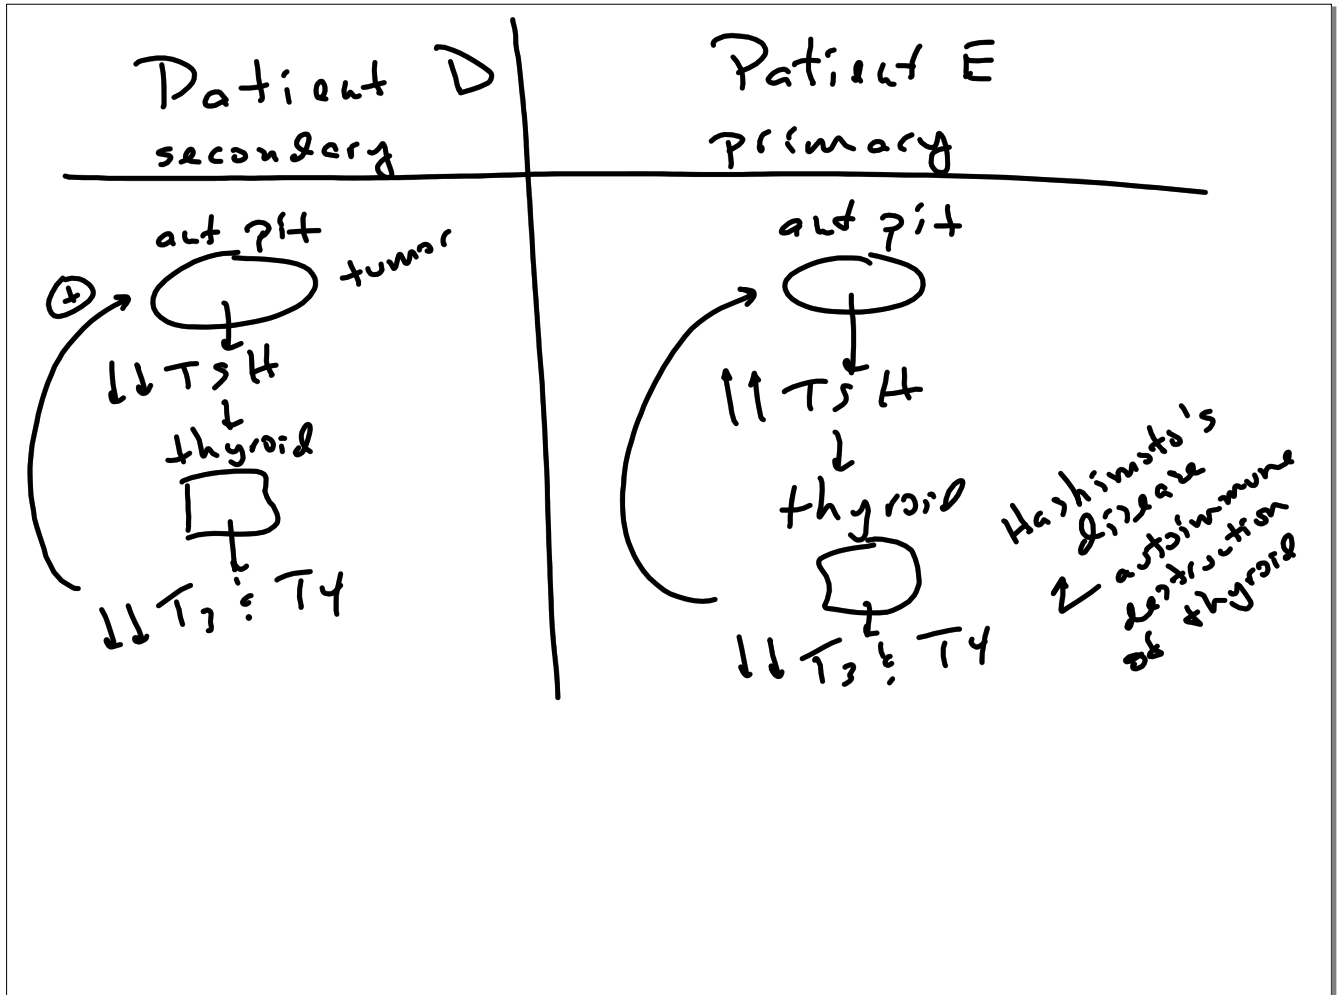 Patient D
secondary
ant pit
tumor
+
↓↓ TSH
↓
thyroid
↓↓ T3 & T4
Patient E
primary
ant pit
↑↑ TSH
↓
thyroid
↓↓ T3 & T4
Hashimoto's
disease
autoimmune
destruction
of thyroid